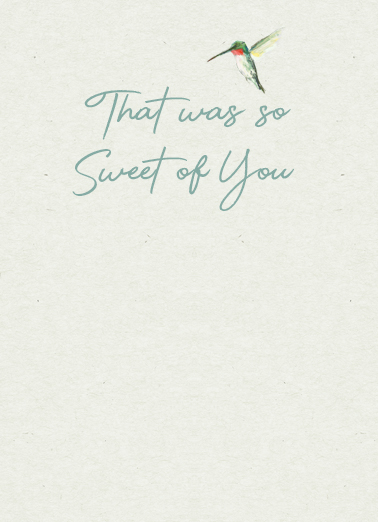 That was so
Sweet of You